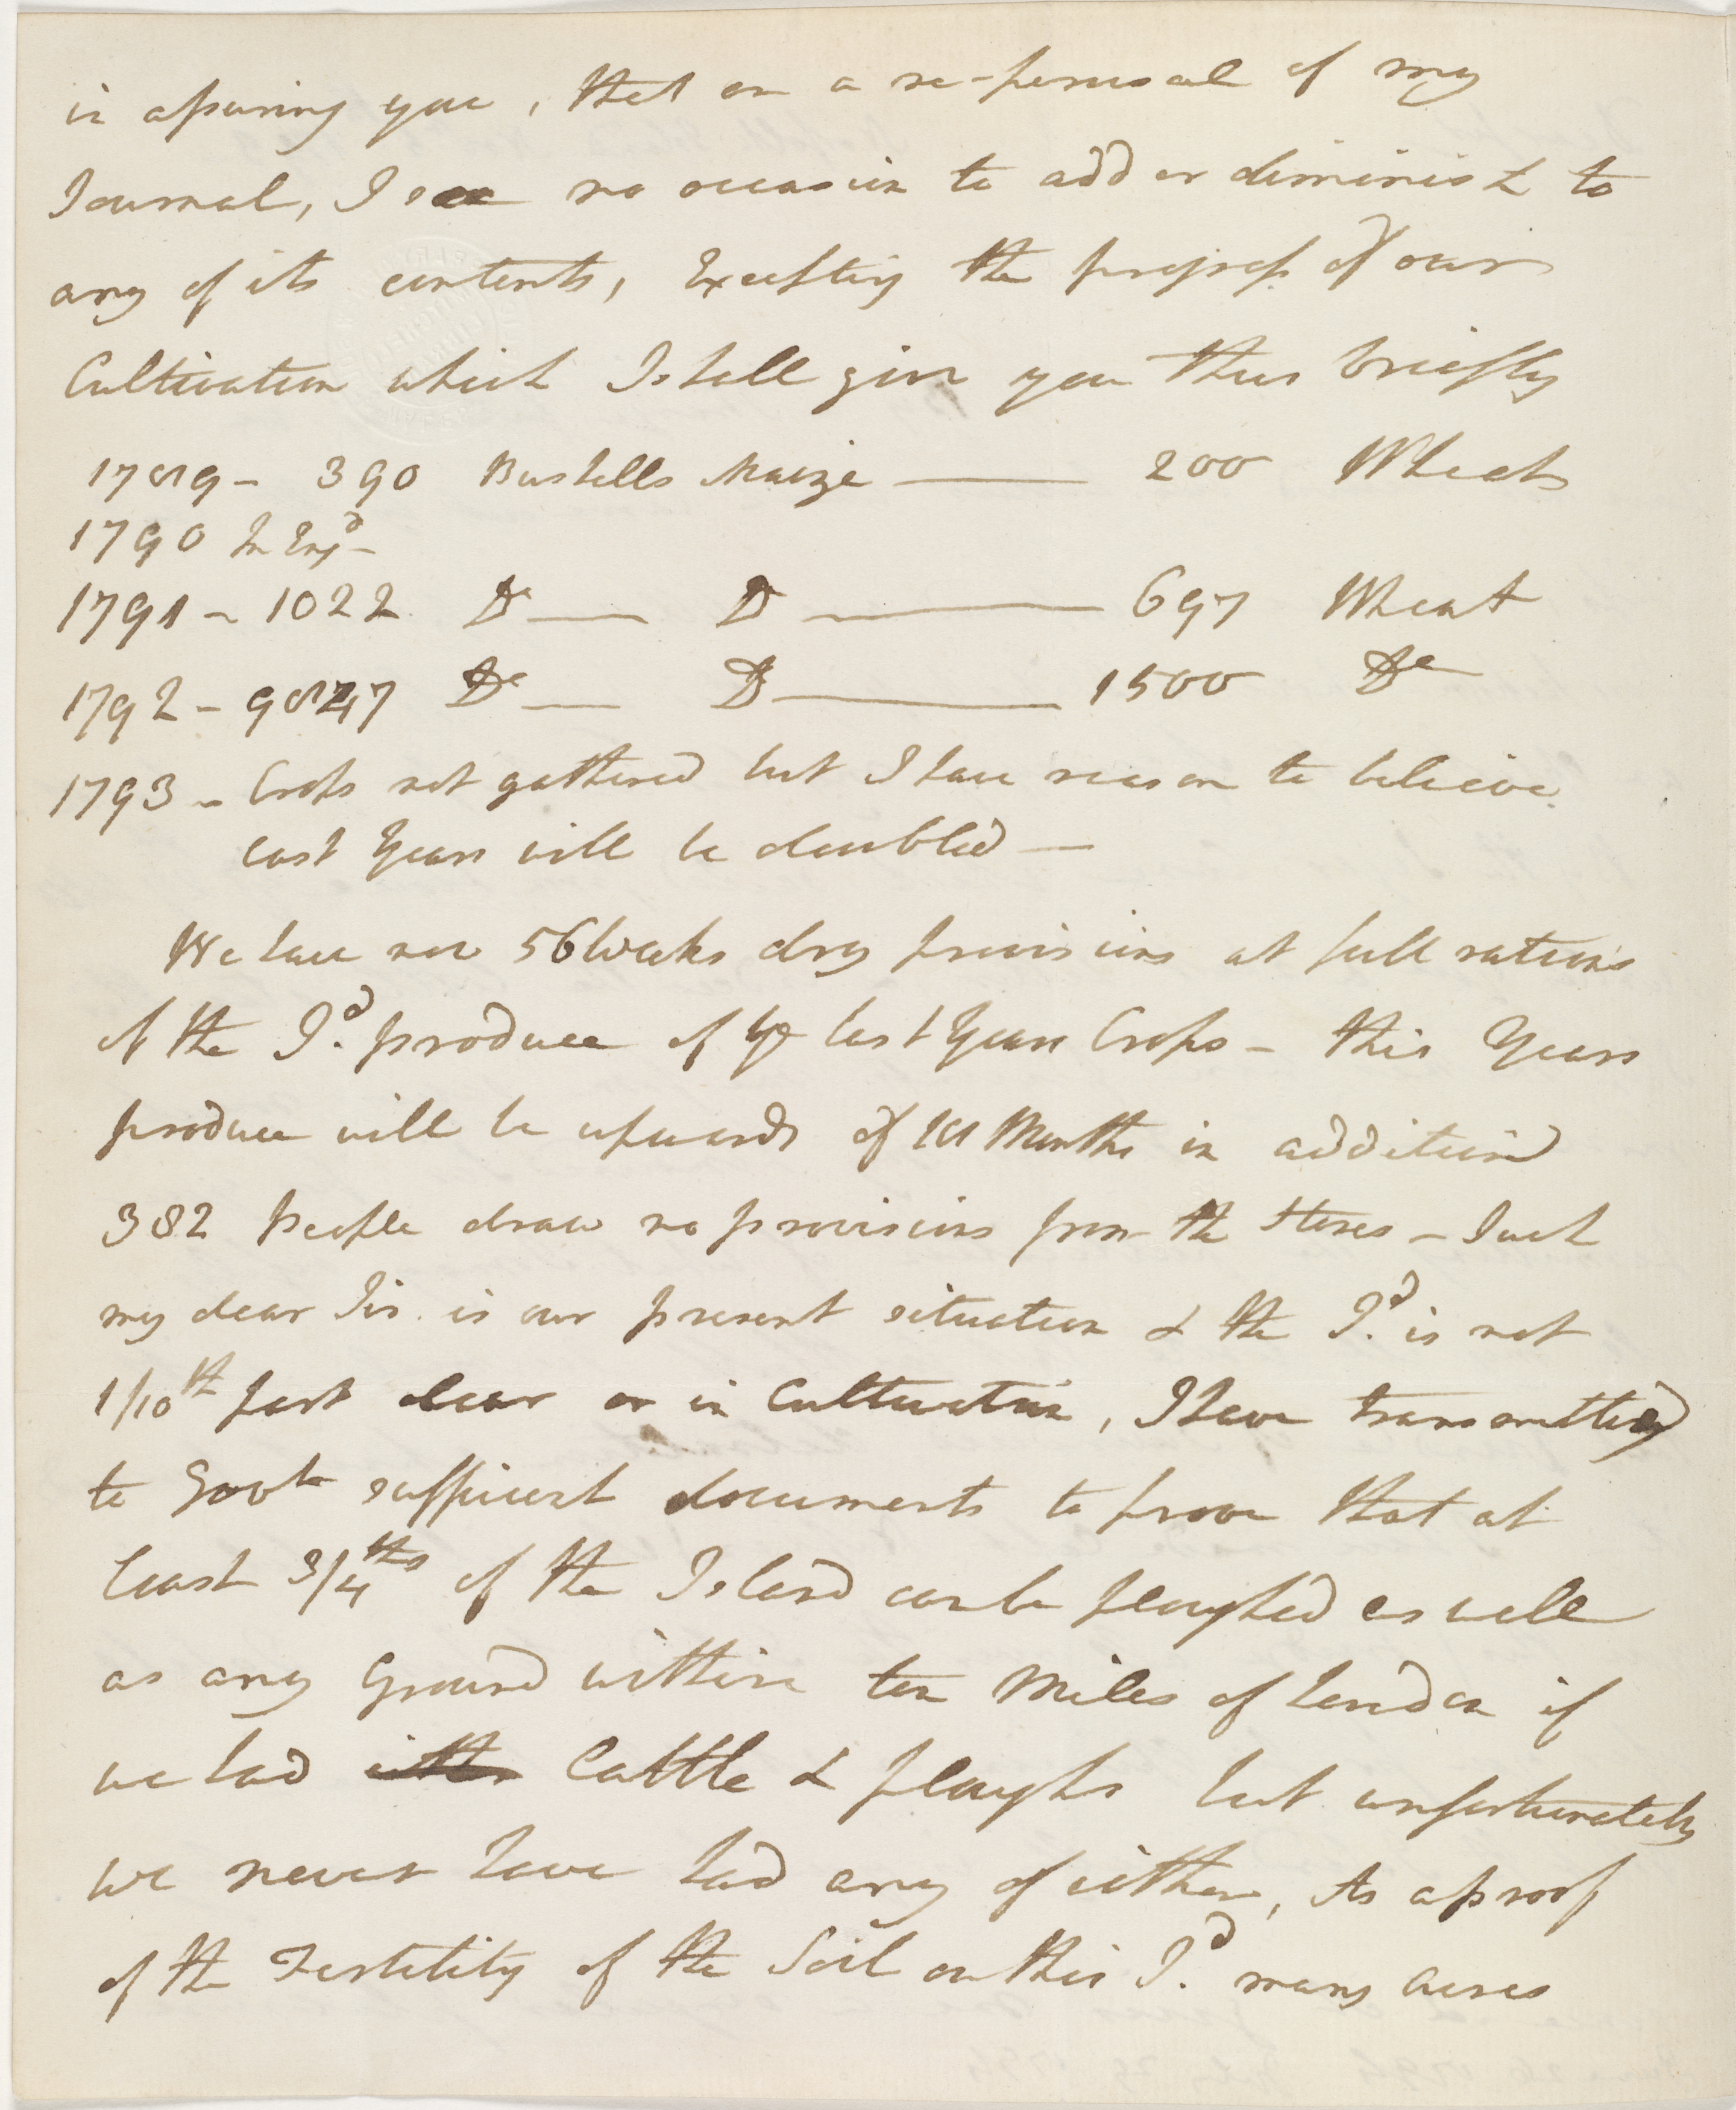 in assuring you, that on a re-perusal of my
Journal, I see no occasion to add or diminish to
any of its contents, Excepting the progress of our
Cultivation which I shall give you thus briefly
1789 - 390 Bushells Maize — 200 Wheat
1790 In Engd -
1791 - 1022 Do — Do — 697 Wheat
1792 - Do — Do — 1500 Do
1793 - Crops not gathered but I have reason to believe
last Years will be doubled —
We have now 56 Weeks dry provisions at full rations
of the Id. produce of ye last Years Crops - this Years
produce will be upwards of Months in addition
382 people draw no provisions from the Stores - Such
my dear Sir. is our present situation & the Id. is not
1/10th part clear or in Cultivation, I have transmitted
to Govt sufficient documents to prove that at
least 3/4ths of the Island can be ploughed as well
as any Ground within ten Miles of London if
we had Cattle & ploughs but unfortunately
we never have had any of either, As a proof
of the Fertility of the Soil on this Id. many Acres